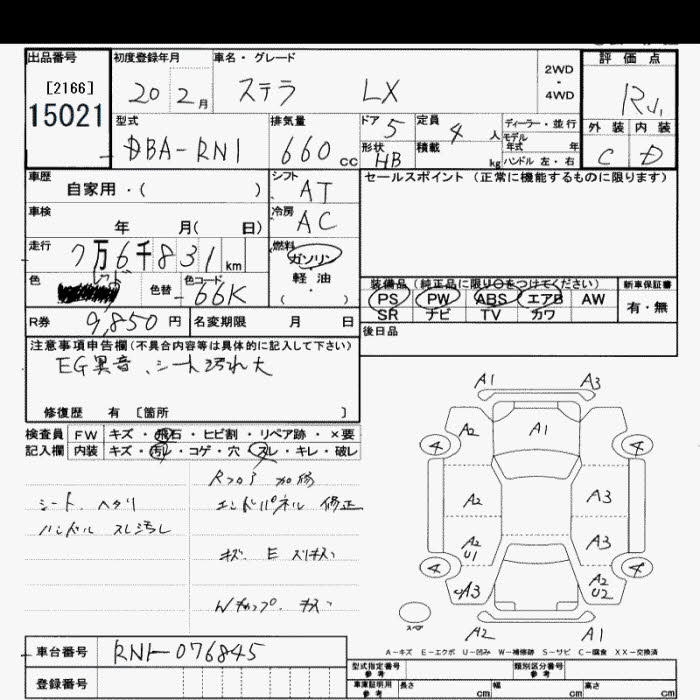 出品番号 初度登録年月 車名・グレード 評価点
[2166] 20 2月 ステラ LX 2WD・4WD R
15021 外装 内装
C D
型式 排気量 ドア 5 定員 4人 ディーラー・並行
DBA-RN1 660cc 形状 HB 積載 kg モデル年式 年
ハンドル 左・右
車歴 自家用・( ) シフト AT セールスポイント (正常に機能するものに限ります)
車検 年 月( 日) 冷房 AC
走行 7万6千831km 燃料 ガソリン
軽油
( ・ )
色 レッド 色替 色コード 66K
装備品 (純正品に限り○をつけてください) 新車保証書
PS PW ABS エアB AW 有・無
SR ナビ TV カワ
R券 9,850円 名変期限 月 日 後日品
注意事項申告欄(不具合内容等は具体的に記入して下さい)
EG異音、シート汚れ大
修復歴 有 [箇所 ]
検査員 FW キズ・飛石・ヒビ割・リペア跡・×要
記入欄 内装 キズ・汚レ・コゲ・穴・スレ・キレ・破レ
Rフロア 加修
シート ヘタリ エンドパネル 修正
ハンドル スレ汚レ
キズ、E スリキズ
Wキャップ、キズ
A1 A3
A2 A1
4 4
A2 A3
A2 U1 A3
4 4
A3 A2 U2
スペア
A2 A1
A-キズ E-エクボ U-凹み W-補修跡 S-サビ C-腐食 XX-交換済
車台番号 RN1-076845
登録番号
型式指定番号 参考 類別区分番号 参考
車庫証明用 参考 長さ cm 幅 cm 高さ cm